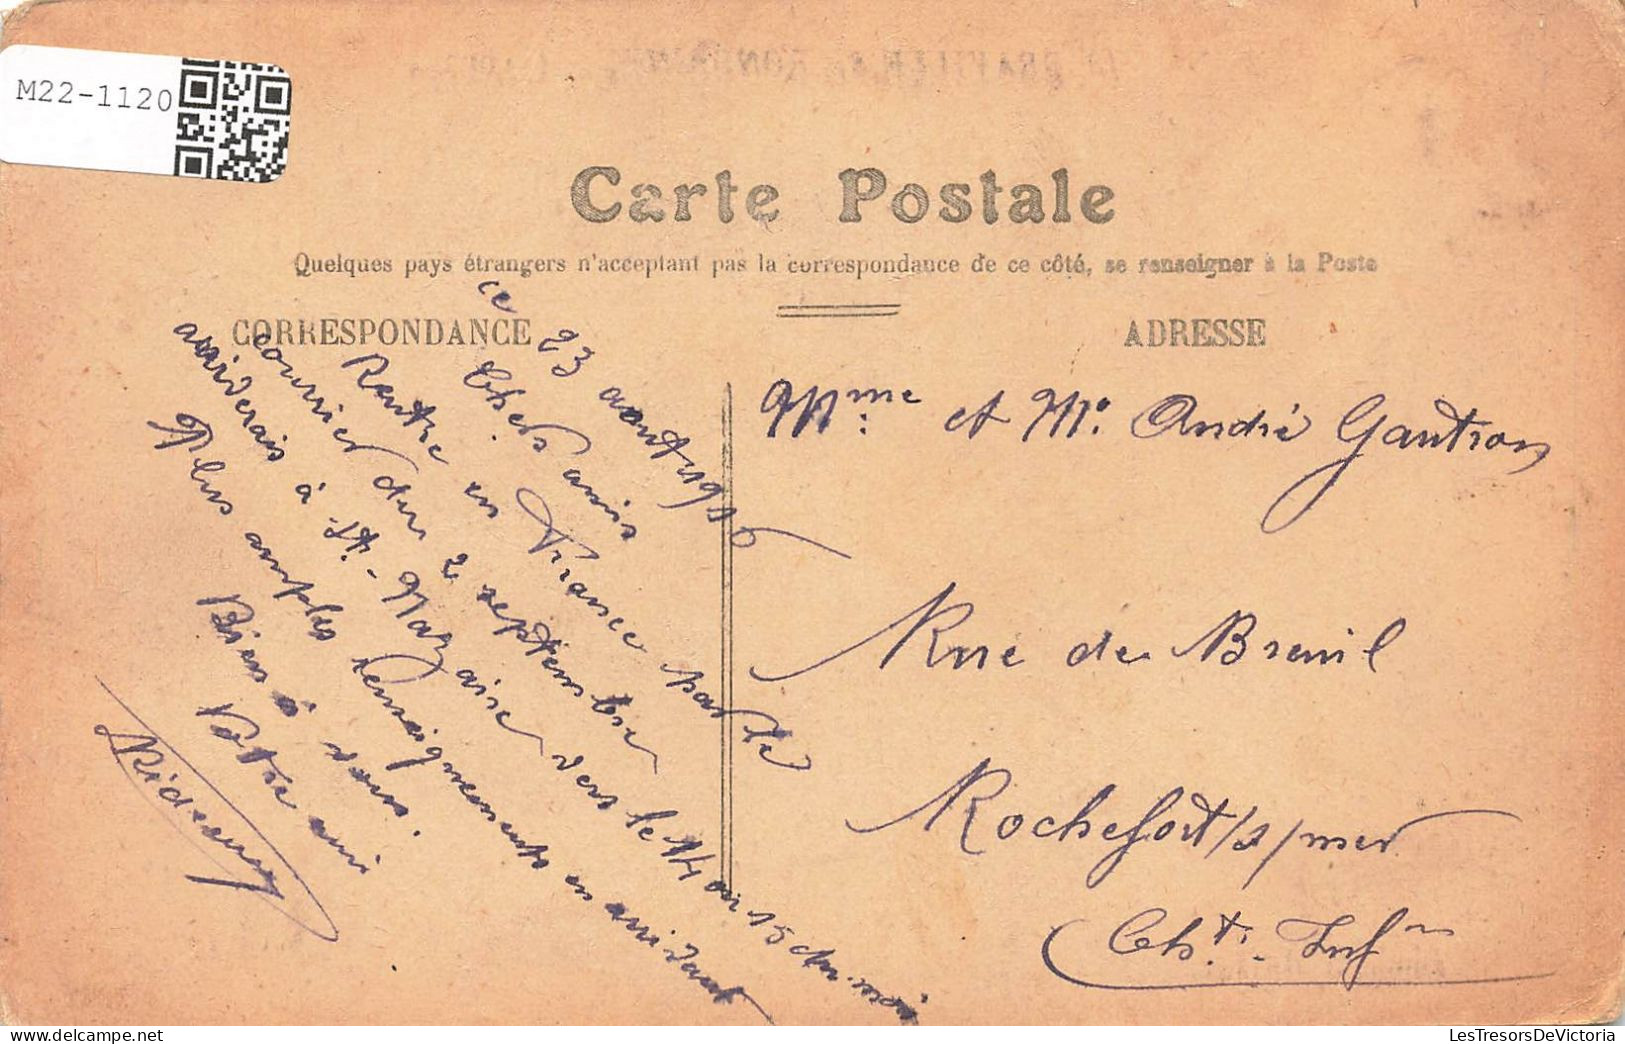 M22-1120
Carte Postale
Quelques pays étrangers n'acceptant pas la correspondance de ce côté, se renseigner à la Poste
CORRESPONDANCE
ADRESSE
ce 23 aout 191
Chers amis
Rentre en France par le
courrier du 2 septembre
arriverais à St-Nazaire vers le 14 ou 15 du mois
Plus amples renseignements en arrivant
Bien à vous.
Votre ami
Mme et Mr. André Gautron
Rue de Breuil
Rochefort/s/mer
Cht. Infre
LesTresorsDeVictoria